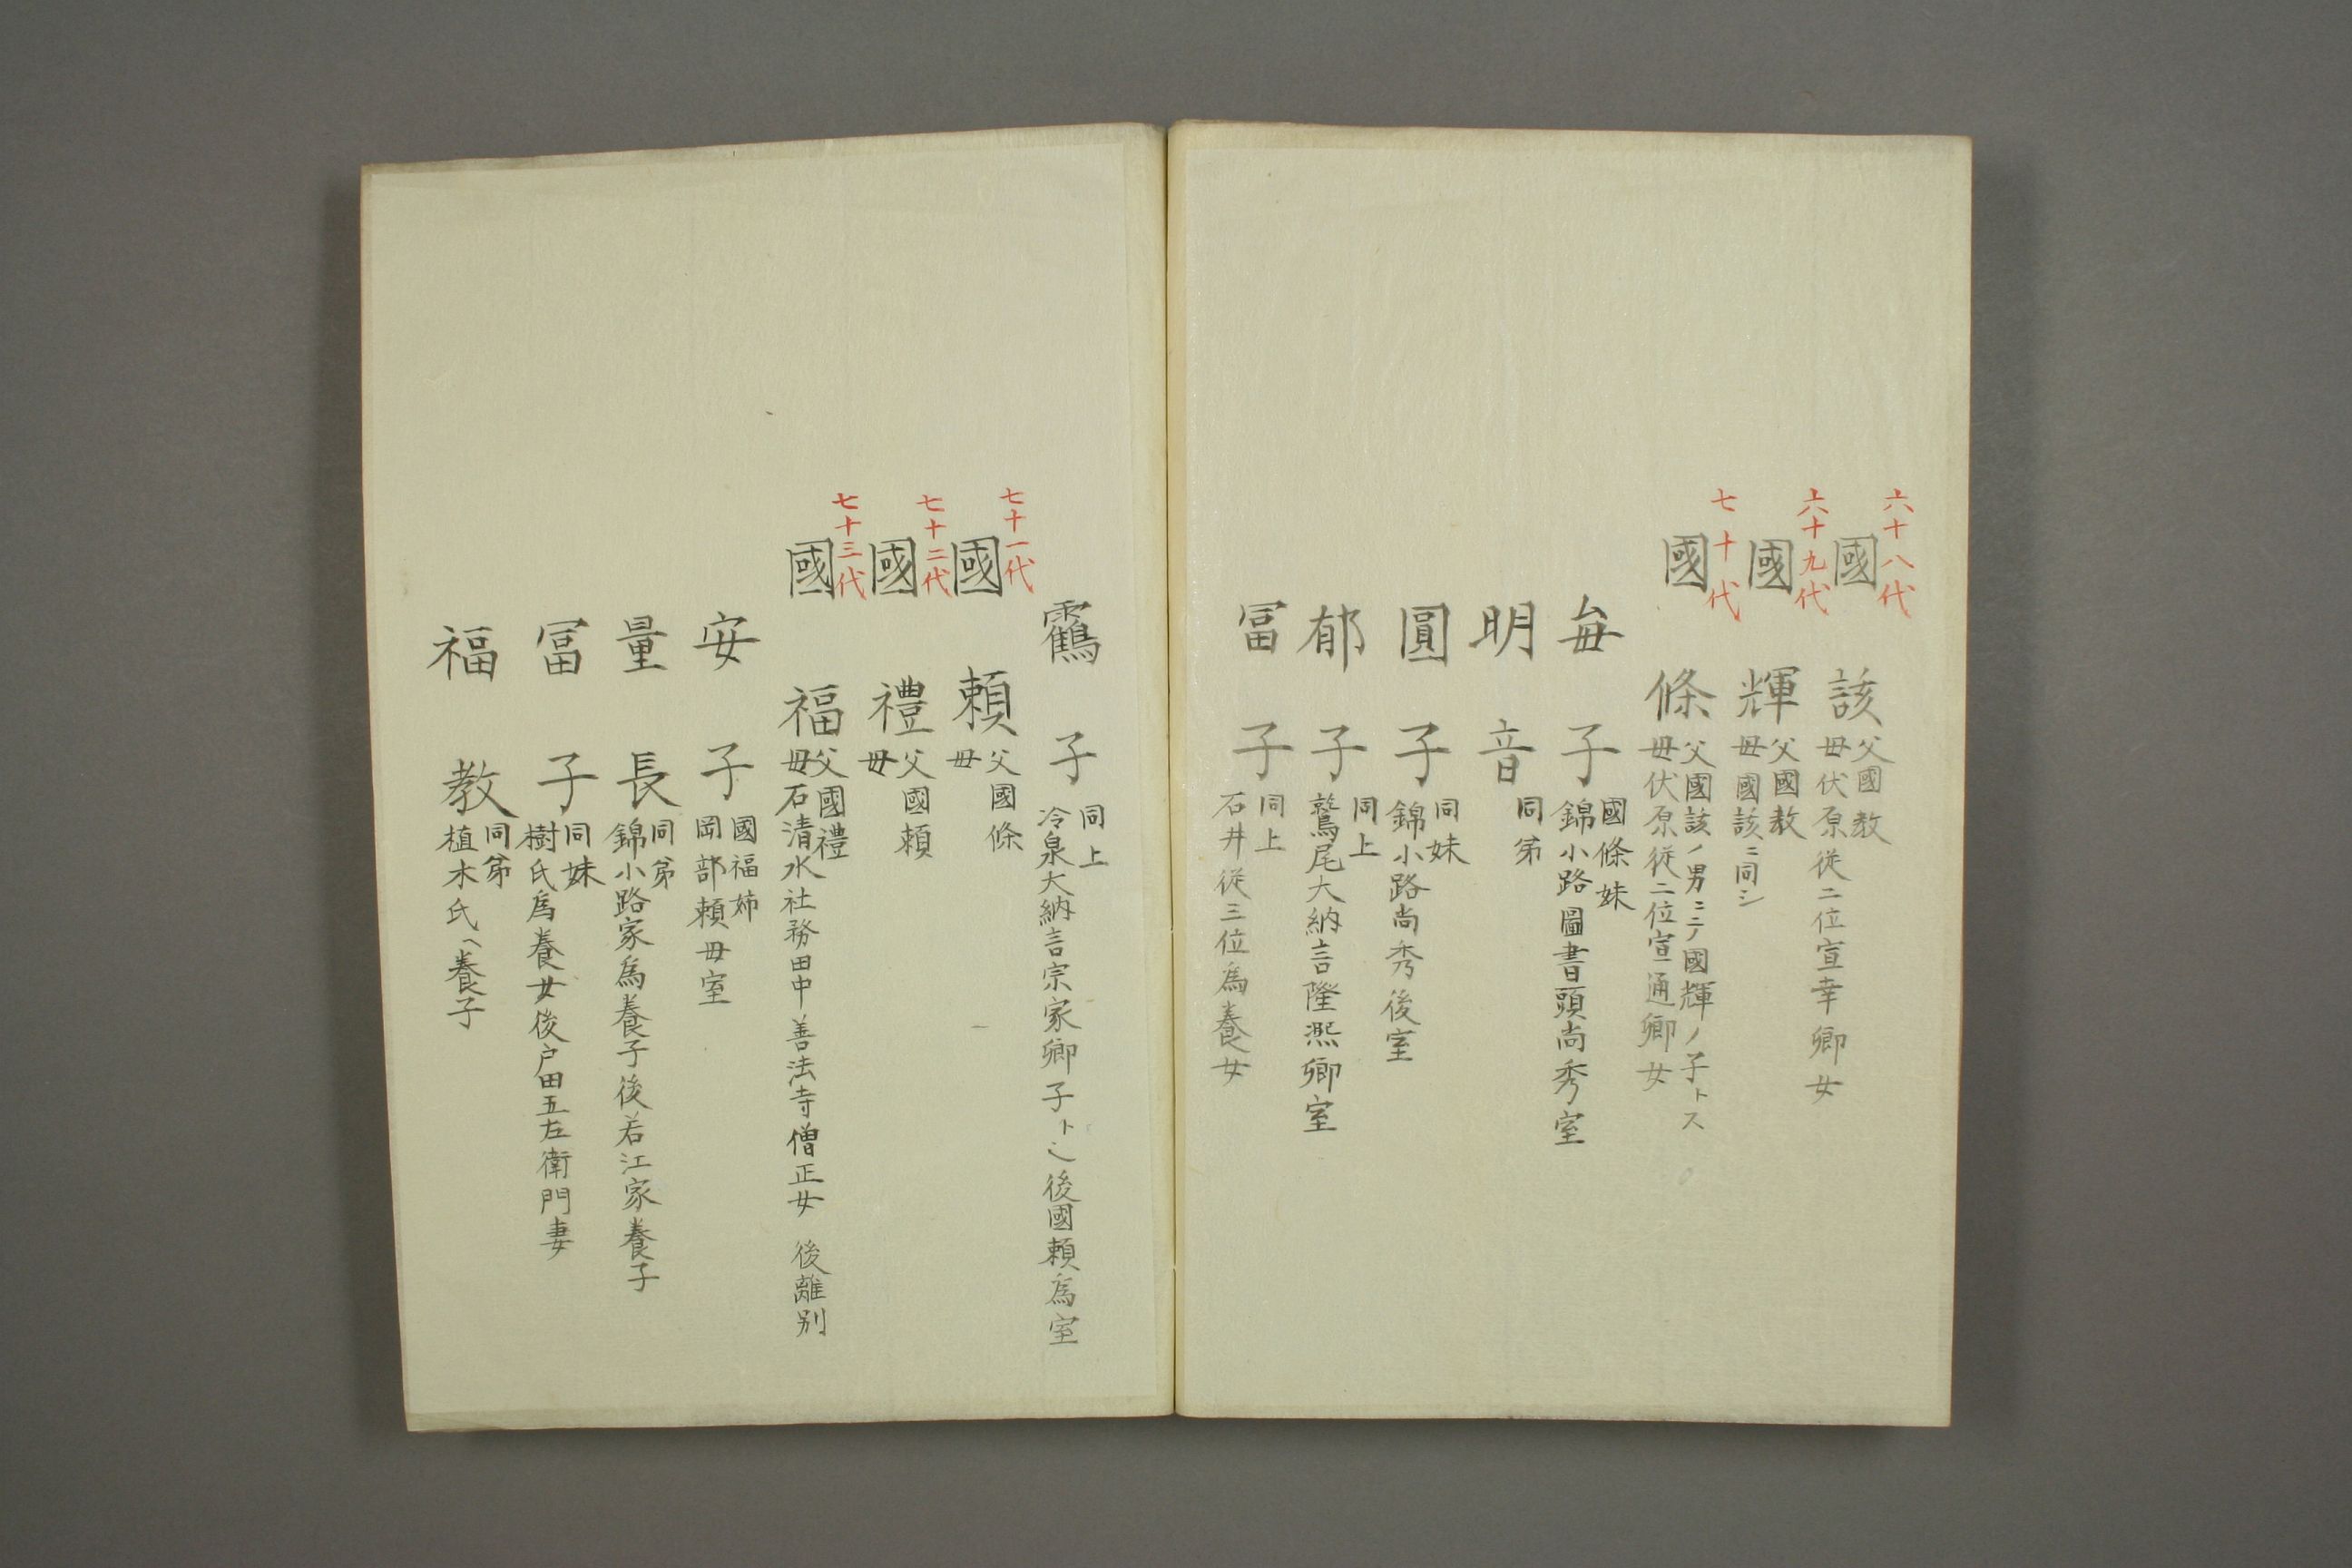 六十八代
國該
父國教
母伏原從二位宣幸卿女
六十九代
國輝
父國教
母國該ニ同シ
七十代
國條
父國該ノ男ニテ國輝ノ子トス
母伏原従二位宣通卿女
毎子
國條妹
錦小路圖書頭尚秀室
明音
同弟
圓子
同妹
錦小路尚秀後室
郁子
同上
鷲尾大納言隆凞卿室
冨子
同上
石井従三位為養女
靍子
同上
冷泉大納言宗家卿子ト〆後國頼為室
七十一代
國頼
父國條
母
七十二代
國禮
父國頼
母
七十三代
國福
父國禮
母石清水社務田中善法寺僧正女 後離別
安子
國福姉
岡部頼母室
量長
同弟
錦小路家為養子後若江家養子
冨子
同妹
樹氏為養女後戸田五左衛門妻
福教
同弟
植木氏ヘ養子